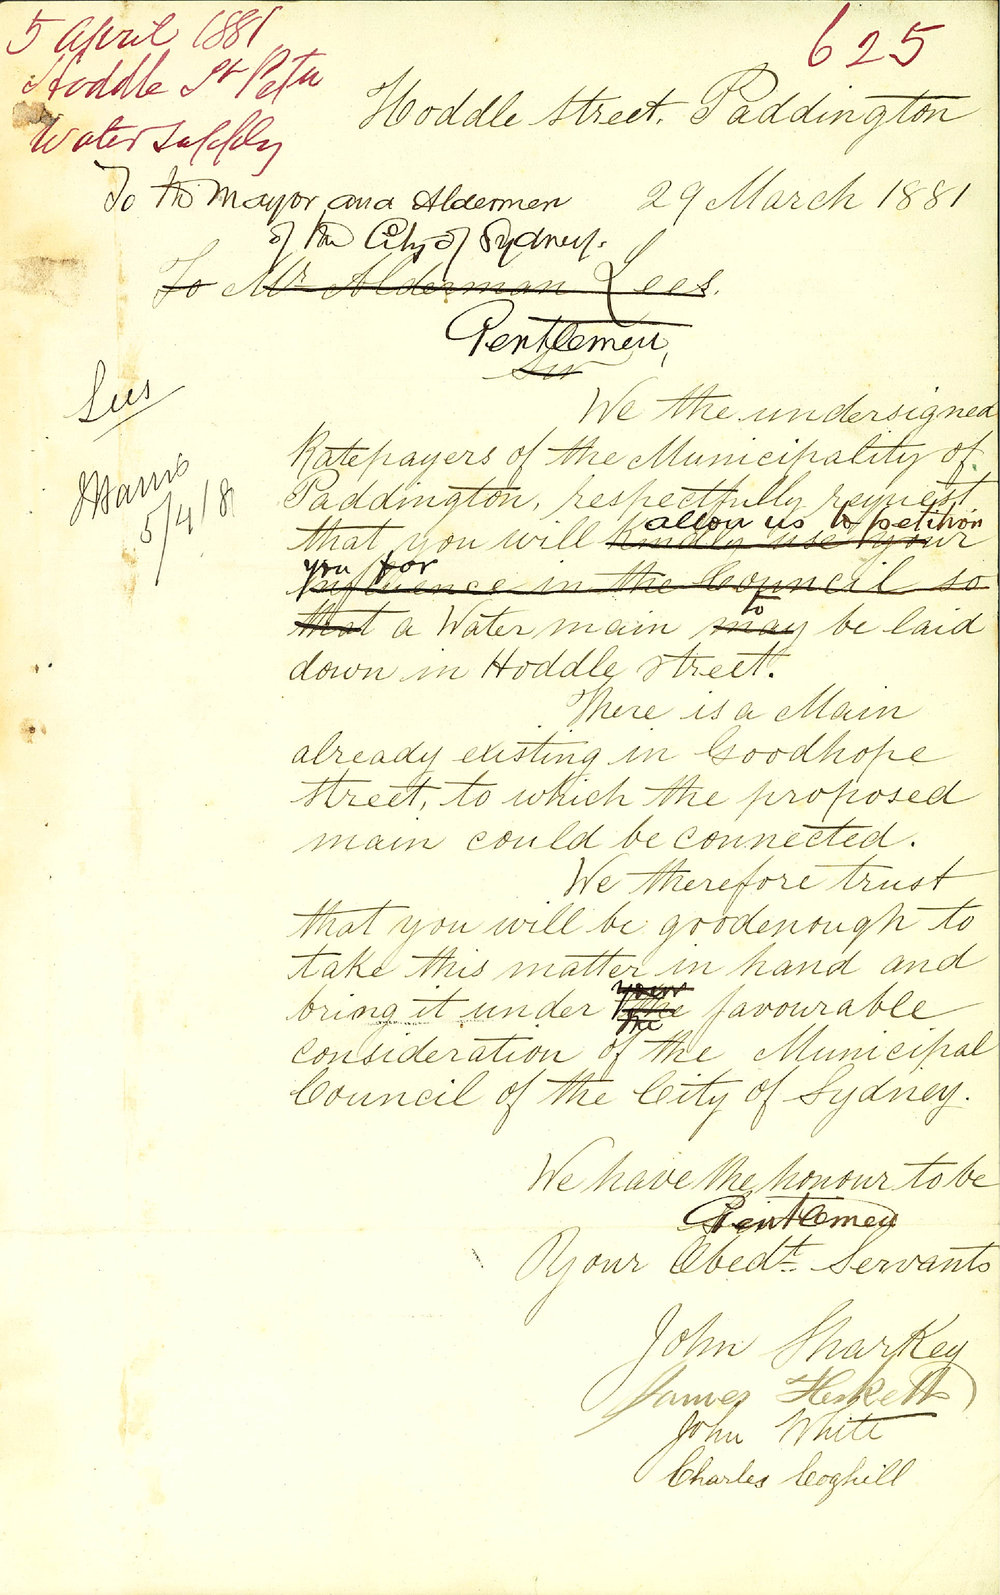 5 April 1881
625
Hoddle St Petn
Water supply
Hoddle Street. Paddington
29 March 1881
To the Mayor and Aldermen
of the City of Sydney.
To Mr Alderman Lees.
Gentlemen,
Sir
Lees
5/4/81
We the undersigned
Ratepayers of the Municipality of
Paddington, respectfully request
allow us to petition
that you will kindly use your
you for
influence in the Council so
to
that a Water main may be laid
down in Hoddle Street.
There is a Main
already existing in Goodhope
Street, to which the proposed
main could be connected.
We therefore trust
that you will be goodenough to
take this matter in hand and
your
bring it under the favourable
the
consideration of the Municipal
Council of the City of Sydney.
We have the honour to be
Gentlemen
Your Obedt. Servants
John Sharkey
James Heskett
John White
Charles Coghill